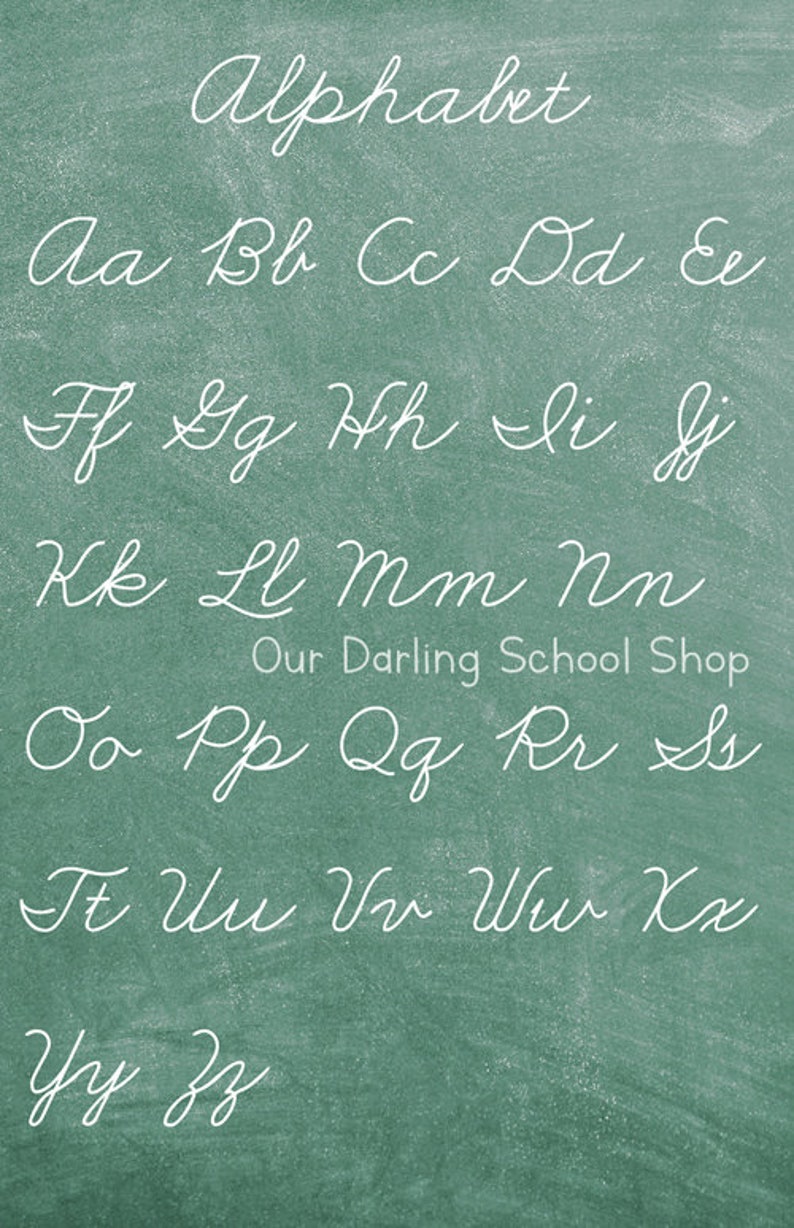 Alphabet
Aa Bb Cc Dd Ee
Ff Gg Hh Ii Jj
Kk Ll Mm Nn
Our Darling School Shop
Oo Pp Qq Rr Ss
Tt Uu Vv Ww Xx
Yy Zz